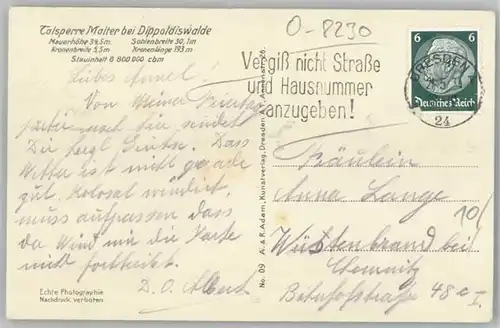 Talsperre Malter bei Dippoldiswalde
Mauerhöhe 34,5m. Sohlenbreite 30,1m
Kronenbreite 5,5m Kronenlänge 193m
Stauinhalt 8 800 000 cbm
O-8230
Vergiß nicht Straße
und Hausnummer
anzugeben!
6 6
Deutsches Reich
DRESDEN
24
Liebes Annel!
Von meiner
sendet
Dir herzl. Das
Wetter ist nicht gerade
gut. Kolosal windig,
muss aufpassen dass
da Wind mir die Karte
nicht forttreibt.
D. O. Albert
Echte Photographie
Nachdruck verboten
No. 09 A. & R. Adam, Kunstverlag, Dresden A., Annenstr. 26.
Fräulein
Anna Lange
10/
Wüstenbrand bei
Chemnitz
Bahnhofstraße 48c I.